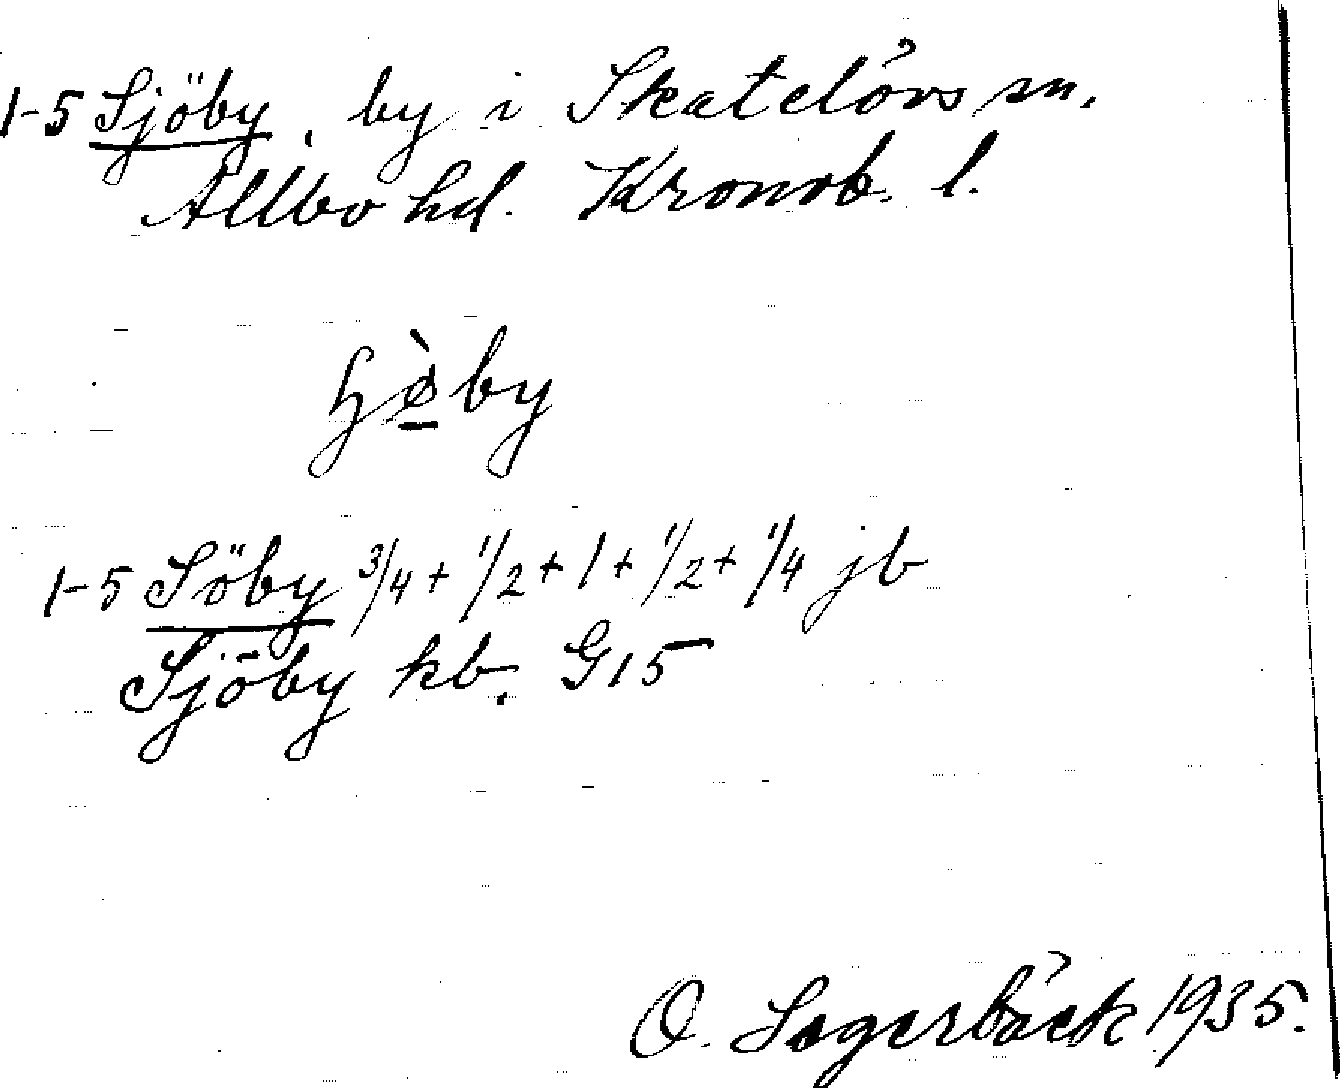 1-5 Sjöby, by i Skatelövs sn.
Allbo hd. Kronob. l.
ɧø̀by
1-5 Söby 3/4 + 1/2 + 1 + 1/2 + 1/4 jb
Sjöby kb. G15
O. Lagerbäck 1935.